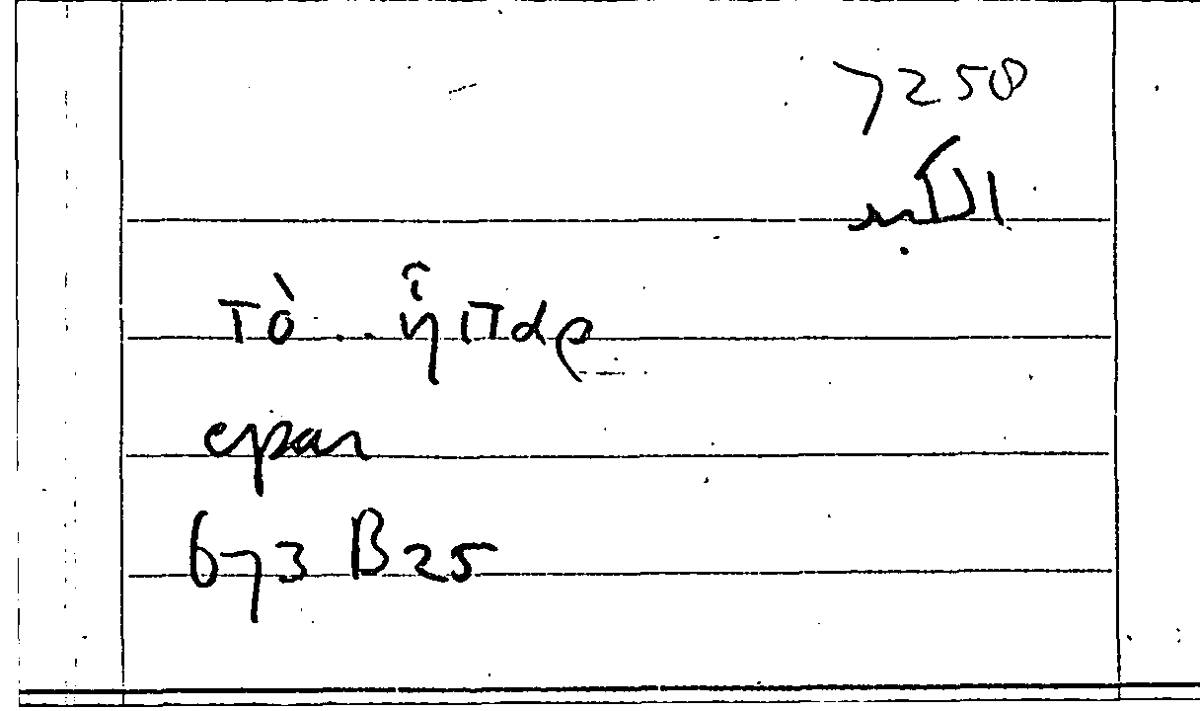 7250
τὸ .. ἧπαρ
epar
673 B25